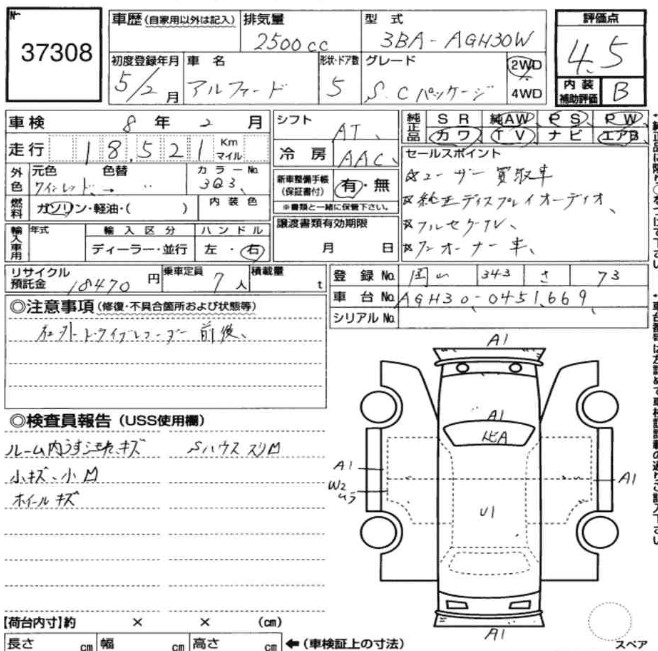 No.
37308
車歴 (自家用以外は記入) 排気量 2500cc 型式 3BA-AGH30W
評価点 4.5
初度登録年月 5/2月 車名 アルファード 形状・ドア数 5 グレード S.Cパッケージ 2WD 4WD
内装補助評価 B
車検 8年2月 シフト AT 純正品 SR 純AW PS PW
カワ TV ナビ エアB
走行 18.521 Km マイル 冷房 AAC
セールスポイント
外色 元色 ワインレッド 色替 → 〃 カラーNo. 3Q3
新車整備手帳(保証書付) 有・無
※書類と一緒に保管下さい。
☆ユーザー買取車
☆純正ディスプレイオーディオ、
☆フルセグTV、
☆ワンオーナー車、
燃料 ガソリン・軽油・( ) 内装色
輸入車用 年式 輸入区分 ディーラー・並行 ハンドル 左・右
譲渡書類有効期限 月 日
リサイクル預託金 18470円 乗車定員 7人 積載量 t
登録No. 岡山 343 さ 73
車台No. AGH30-0451669
シリアルNo.
◎注意事項(修復・不具合箇所および状態等)
社外ドライブレコーダー前後、
◎検査員報告(USS使用欄)
ルーム内うすよごれ、キズ Sハウス スリ凹
小キズ、小凹
ホイールキズ
A1
A1
A1
W2
U1
A1
A1
【荷台内寸】約 × × (cm)
長さ cm 幅 cm 高さ cm ←(車検証上の寸法)
スペア